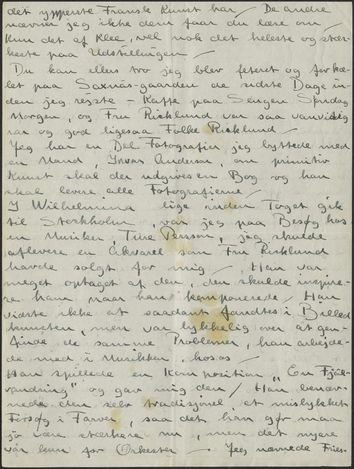 det ypperste Fransk Kunst har / De andre
nævner jeg ikke dem faar du læse om
Kun det af Klee, vel nok det heleste og stær-
keste paa Udstillingen /
Du kan ellers tro jeg blev feteret og forkæ-
let paa Saxnäs-gaarden de sidste Dage in-
den jeg rejste - Kaffe paa Sengen Søndag
Morgen, og Fru Ricklund var saa vanvittig
rar og god ligesaa Folke Ricklund /
Jeg har en Del Fotografier jeg byttede med
en Mand, Yvar Anderson, om primitiv
Kunst skal der udgives en Bog og han
skal levere alle Fotografierne /
I Wilhelmina lige inden Toget gik
til Stockholm, var jeg paa Besøg hos
en Musiker, Ture Persson, jeg skulde
aflevere en Akvarel som Fru Ricklund
havde solgt for mig / Han var
meget optaget af den, den skulde inspire-
re ham, naar han komponerede / Han
vidste ikke at saadant fandtes i Billed-
kunsten, men var lykkelig over at gen-
finde de samme Problemer, han arbejde-
de med i Musikken hos os /
Han spillede en Komposition "En Fjäll-
vandring" og gav mig den / Han benæv-
nede den selv tradisjonel et mislykket
Forsøg i Farver, saa det kan gør man
jo være stærkere nu, men det nyere
var kun for Orkester - Jeg nævnede Fris-